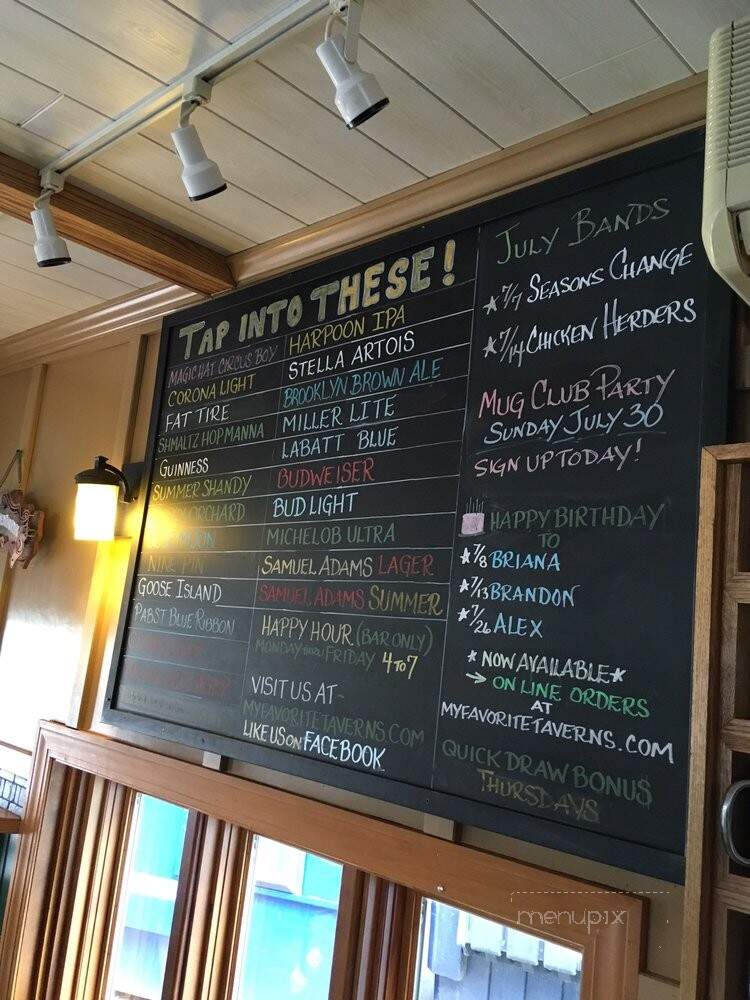 TAP INTO THESE!
MAGIC HAT CIRCUS BOY
CORONA LIGHT
FAT TIRE
SHMALTZ HOP MANNA
GUINNESS
SUMMER SHANDY
ORCHARD
NINE PIN
GOOSE ISLAND
PABST BLUE RIBBON
HARPOON IPA
STELLA ARTOIS
BROOKLYN BROWN ALE
MILLER LITE
LABATT BLUE
BUDWEISER
BUD LIGHT
MICHELOB ULTRA
SAMUEL ADAMS LAGER
SAMUEL ADAMS SUMMER
HAPPY HOUR (BAR ONLY)
MONDAY THRU FRIDAY 4 TO 7
VISIT US AT-
MYFAVORITETAVERNS.COM
LIKE US ON FACEBOOK
JULY BANDS
★7/7 SEASONS CHANGE
★7/14 CHICKEN HERDERS
MUG CLUB PARTY
SUNDAY JULY 30
SIGN UP TODAY!
HAPPY BIRTHDAY
TO
★7/8 BRIANA
★7/13 BRANDON
★7/26 ALEX
★NOW AVAILABLE★
→ ON LINE ORDERS
AT
MYFAVORITETAVERNS.COM
QUICK DRAW BONU$
THURSDAYS
menupix